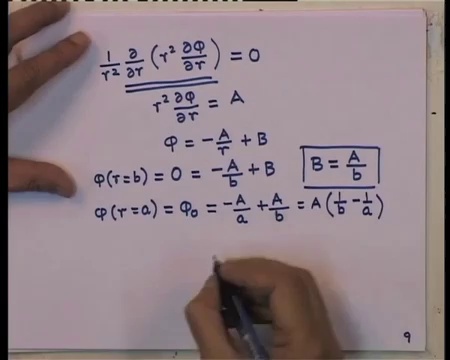 1/r² ∂/∂r (r² ∂φ/∂r) = 0
r² ∂φ/∂r = A
φ = -A/r + B
φ(r=b) = 0 = -A/b + B   B = A/b
φ(r=a) = φ₀ = -A/a + A/b = A(1/b - 1/a)
9